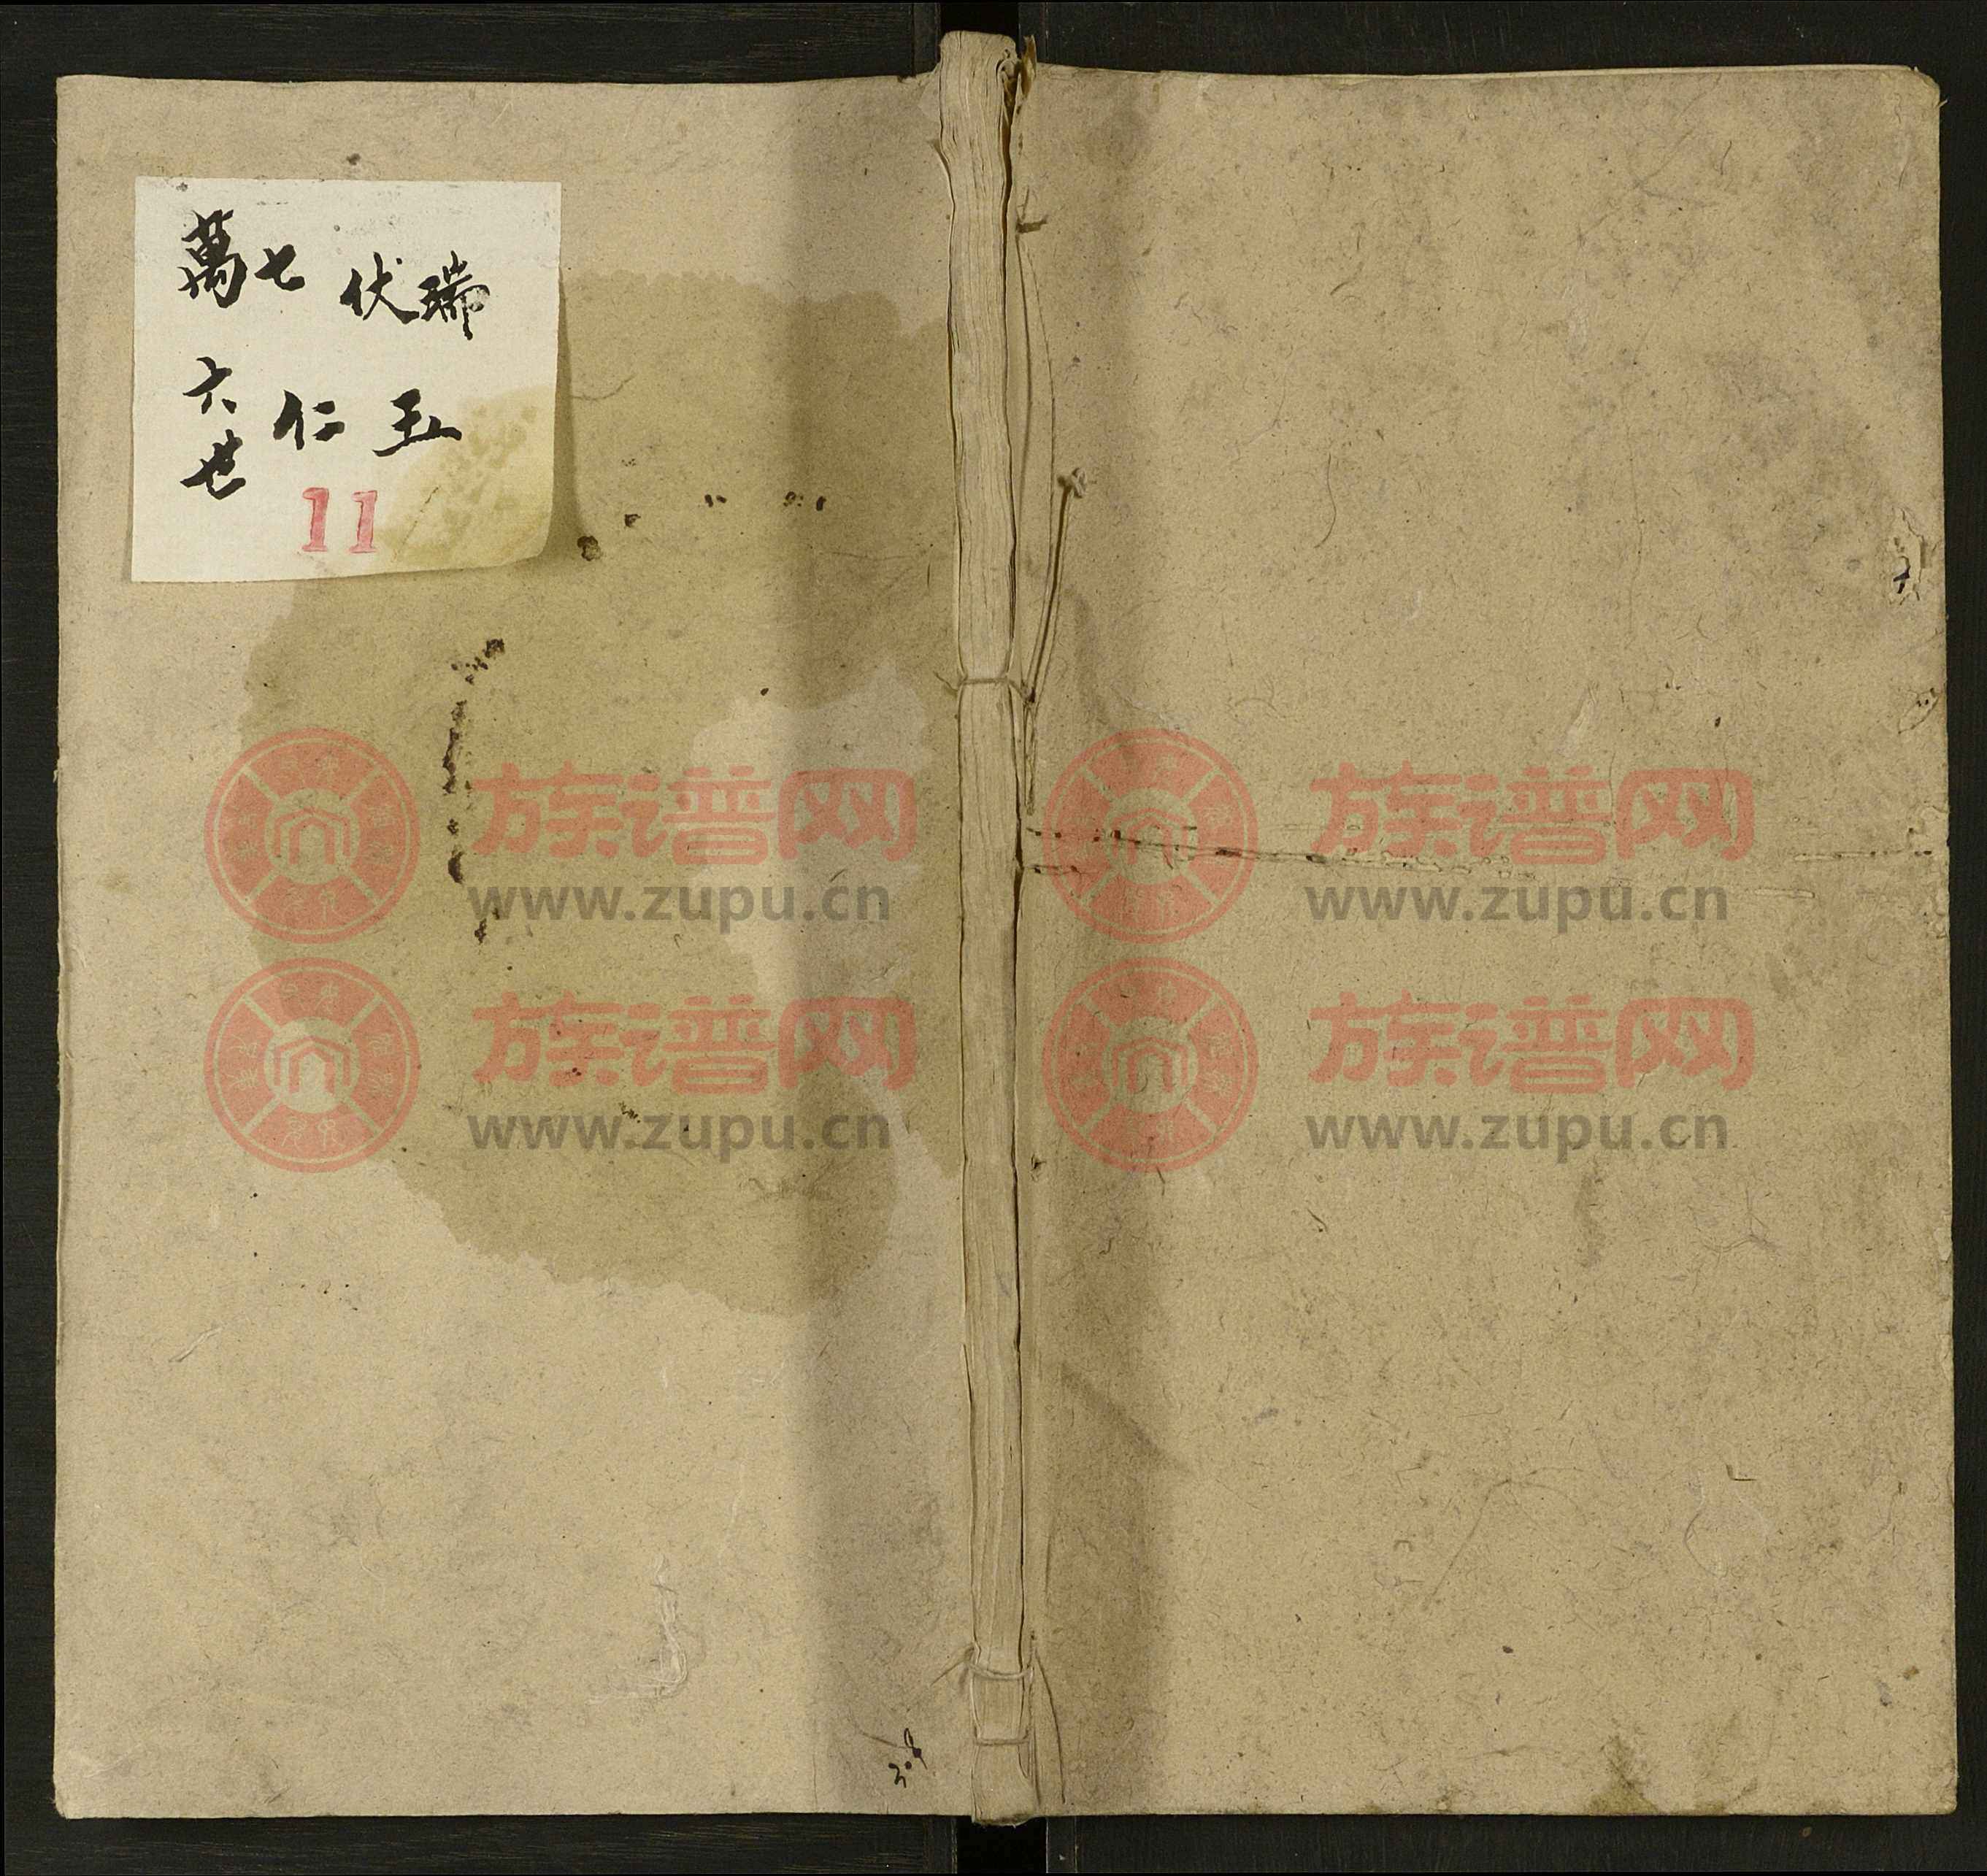 瑞
伏玉
七仁
萬六世
11
族谱网 族谱网
www.zupu.cn www.zupu.cn
族谱网 族谱网
www.zupu.cn www.zupu.cn